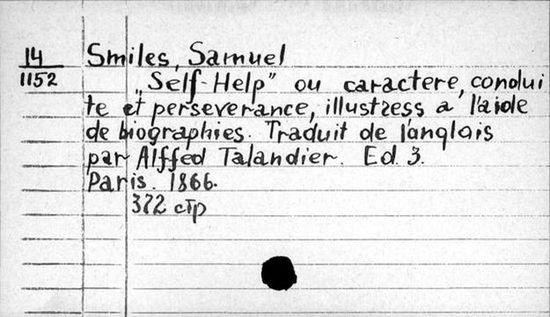 14
1152
Smiles, Samuel
„Self-Help" ou caractere, condui
te et perseverance, illustress a l'aide
de biographies. Traduit de l'anglais
par Alffed Talandier. Ed. 3.
Paris. 1866.
372 стр